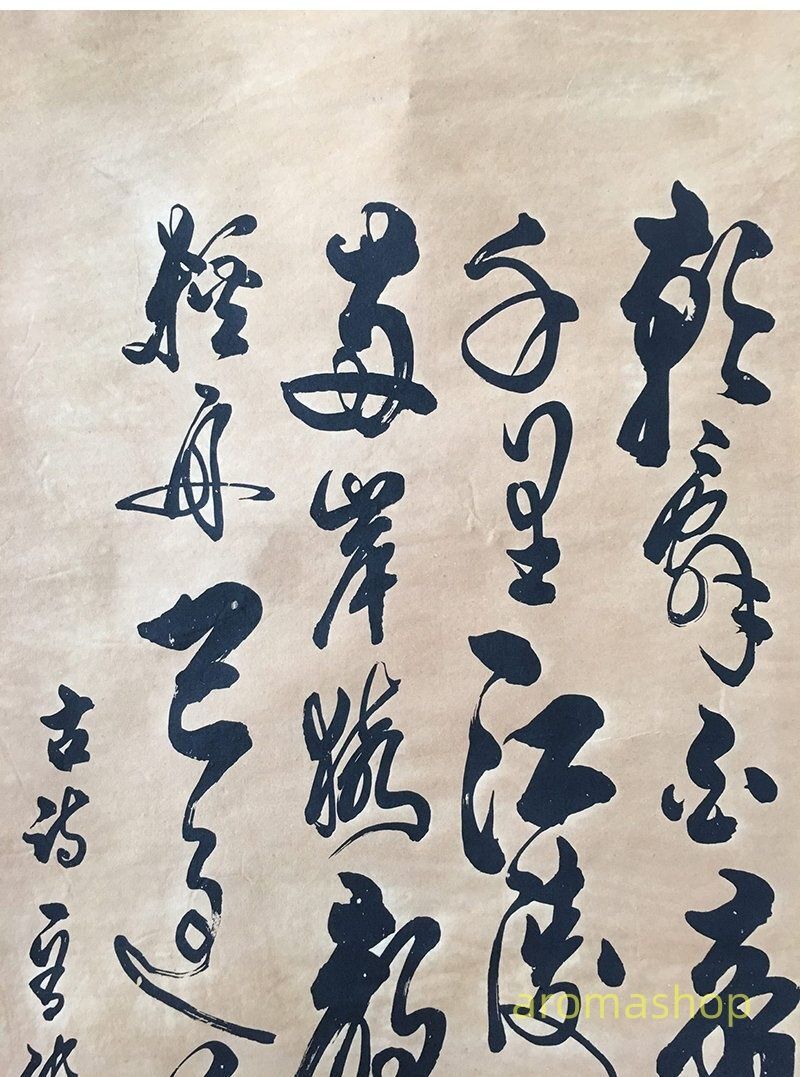 朝辭白帝
千里江陵
兩岸猿聲
輕舟已過
古詩一首
aromashop